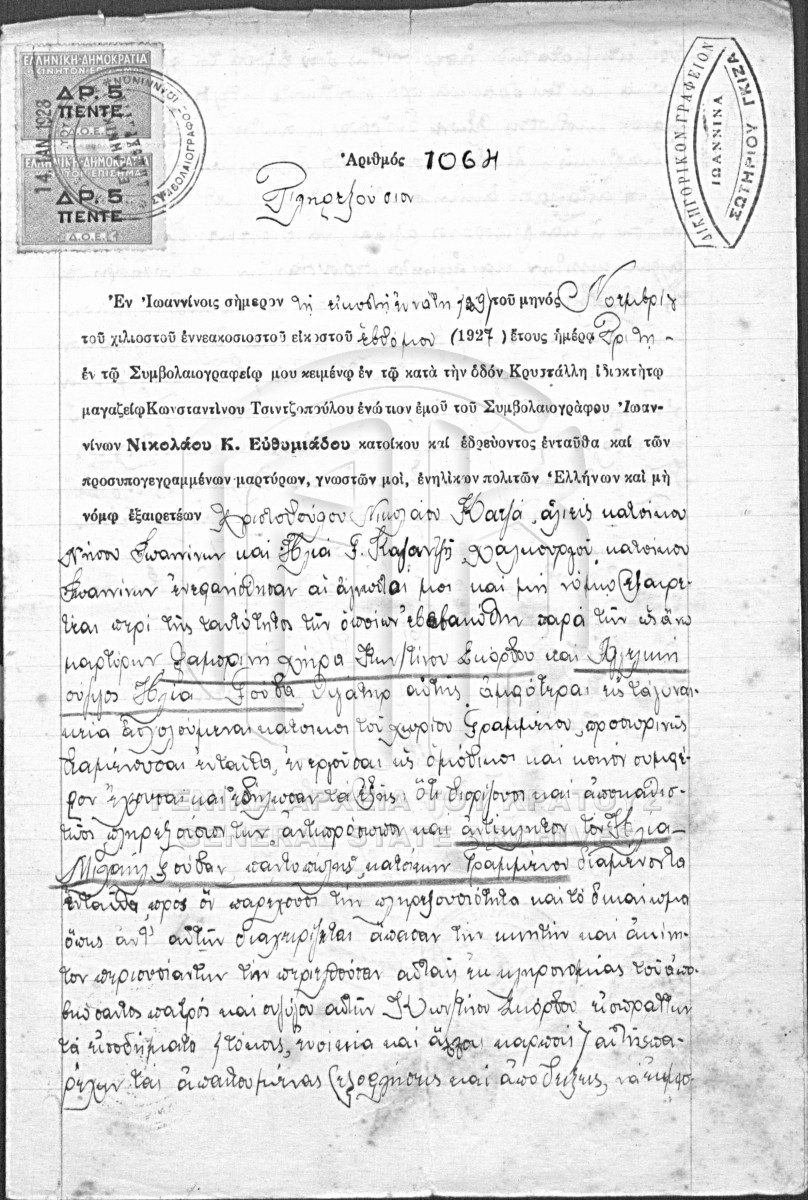 ΕΛΛΗΝΙΚΗ ΔΗΜΟΚΡΑΤΙΑ
ΔΡ. 5
ΠΕΝΤΕ
Δ.Ο.Ε.
ΕΛΛΗΝΙΚΗ ΔΗΜΟΚΡΑΤΙΑ
ΚΙΝΗΤΟΝ ΕΠΙΣΗΜΑ
ΔΡ. 5
ΠΕΝΤΕ
Δ.Ο.Ε.
ΔΙΚΗΓΟΡΙΚΟΝ ΓΡΑΦΕΙΟΝ
ΙΩΑΝΝΙΝΑ
ΣΩΤΗΡΙΟΥ ΓΚΙΖΑ
Ἀριθμός 1064
Πληρεξούσιον
Ἐν Ἰωαννίνοις σήμερον τῇ εἰκοστῇ ἐννάτῃ (29) τοῦ μηνός Νοεμβρίου
τοῦ χιλιοστοῦ ἐννεακοσιοστοῦ εἰκοστοῦ ἑβδόμου (1927) ἔτους ἡμέρᾳ Τρίτῃ -
ἐν τῷ Συμβολαιογραφείῳ μου κειμένῳ ἐν τῷ κατὰ τὴν ὁδόν Κρυστάλλη ἰδιοκτήτῳ
μαγαζείῳ Κωνσταντίνου Τσιντζοπούλου ἐνώπιον ἐμοῦ τοῦ Συμβολαιογράφου Ἰωαν-
νίνων Νικολάου Κ. Εὐθυμιάδου κατοίκου καί ἑδρεύοντος ἐνταῦθα καί τῶν
προσυπογεγραμμένων μαρτύρων, γνωστῶν μοι, ἐνηλίκων πολιτῶν Ἑλλήνων καί μή
νόμῳ ἐξαιρετέων Χριστοδούλου Νικολάου Κατσᾶ, ἁλιεῖς κατοίκου
Νήσου Ἰωαννίνων καὶ Ἠλία Γ. Καζαντζῆ χαλκουργοῦ, κατοίκου
Ἰωαννίνων ἐνεφανίσθησαν αἱ ἄγνωσται μοι καὶ μή νόμῳ ἐξαιρε-
τέαι περὶ τῆς ταυτότητος τῶν ὁποίων ἐβεβαιώθην παρὰ τῶν ὡς ἄνω
μαρτύρων χήρα Κων/τίνου Σκόρδου καὶ Ἀγγελική
σύζυγος Ἠλία Γούδα, θυγάτηρ αὐτῆς ἀμφότεραι εἰς τὰ γυναι-
κεῖα ἀσχολούμεναι κάτοικοι τοῦ χωρίου Γραμμένου, προσωρινῶς
διαμένουσαι ἐνταῦθα, ἐνεργοῦσαι ὡς ὁμόδικοι καὶ κοινόν συμφέ-
ρον ἔχουσαι καὶ ἐδήλωσαν τὰ ἑξῆς· ὅτι διορίζουσι καὶ ἀποκαθισ-
τῶσι πληρεξούσιον των, ἀντιπρόσωπον καὶ ἀντίκλητον τὸν Ἠλία-
Μιχαήλ Γούδαν, παντοπώλην, κάτοικον Γραμμένου διαμένοντα
ἐνταῦθα, πρός ὅν παρέχουσι τὴν πληρεξουσιότητα καὶ τὸ δικαίωμα
ὅπως ἀντ' αὐτῶν διαχειρίζεται ἅπασαν τὴν κινητήν καὶ ἀκίνη-
τον περιουσίαν των τὴν περιελθοῦσαν αὐταῖς ἐκ κληρονομίας τοῦ ἀπο-
βιώσαντος πατρός καὶ συζύγου αὐτῶν Κων/τίνου Σκόρδου εἰσπράττων
τὰ εἰσοδήματα (τόκους, ἐνοίκια καὶ ἄλλους καρπούς) αὐτῆς πα-
ρέχων τὰς ἀπαιτουμένας ἐξοφλήσεις καὶ ἀποδείξεις,
ΓΕΝΙΚΑ ΑΡΧΕΙΑ ΤΟΥ ΚΡΑΤΟΥΣ
GENERAL STATE ARCHIVES